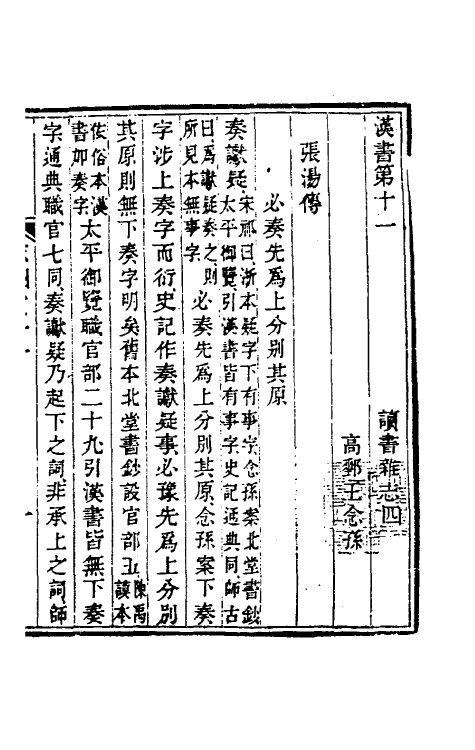 漢書第十一　讀書雜志四
高郵王念孫
張湯傳
必奏先為上分別其原
奏讞疑宋祁曰浙本疑字下有事字念孫案北堂書鈔
太平御覽引漢書皆有事字史記通典同師古
曰為讞疑奏之則
所見本無事字必奏先為上分別其原念孫案下奏
字涉上奏字而衍史記作奏讞疑事必豫先為上分別
其原則無下奏字明矣舊本北堂書鈔設官部五陳禹
謨本
依俗本漢
書加奏字太平御覽職官部二十九引漢書皆無下奏
字通典職官七同奏讞疑乃起下之詞非承上之詞師